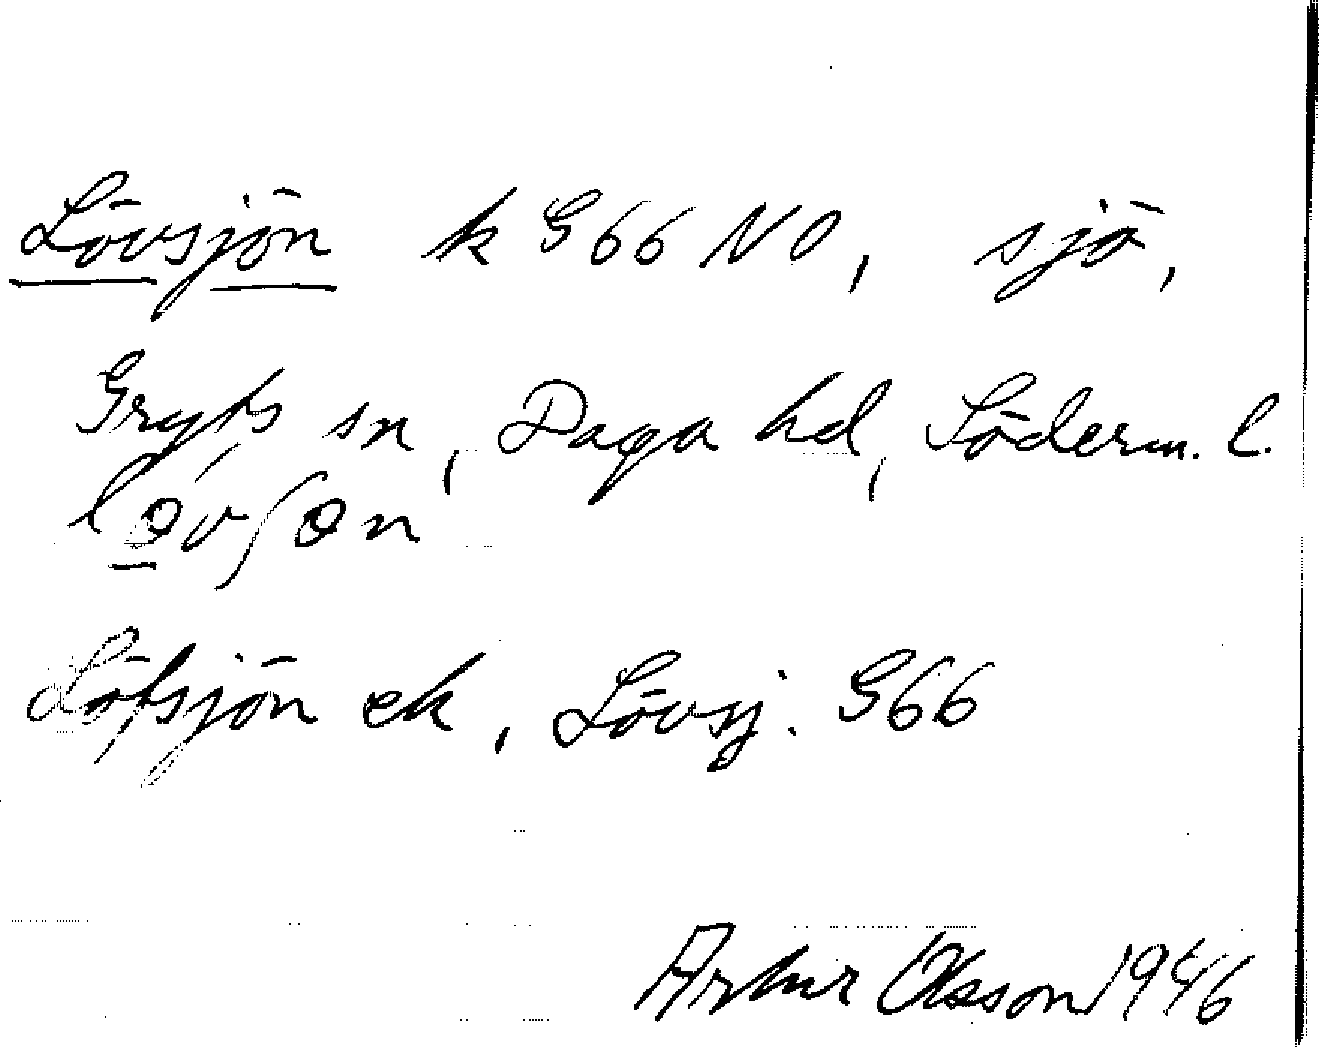 Lövsjön k G66 NO, sjö,
Gryts sn, Daga hd, Söderm. l.
Löfsjön ek, Lövsj. G66
Artur Olsson 1946